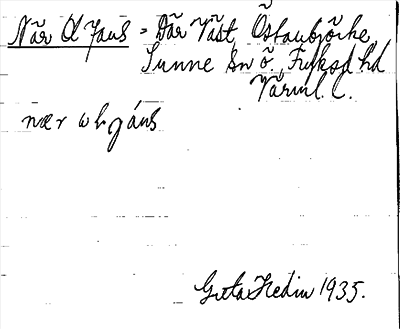 När Ol Jans = Där Väst, Östanbjörke,
Sunne sn o, Fryksd hd
Värml. l.
nær ω l jáns
Greta Hedin 1935.